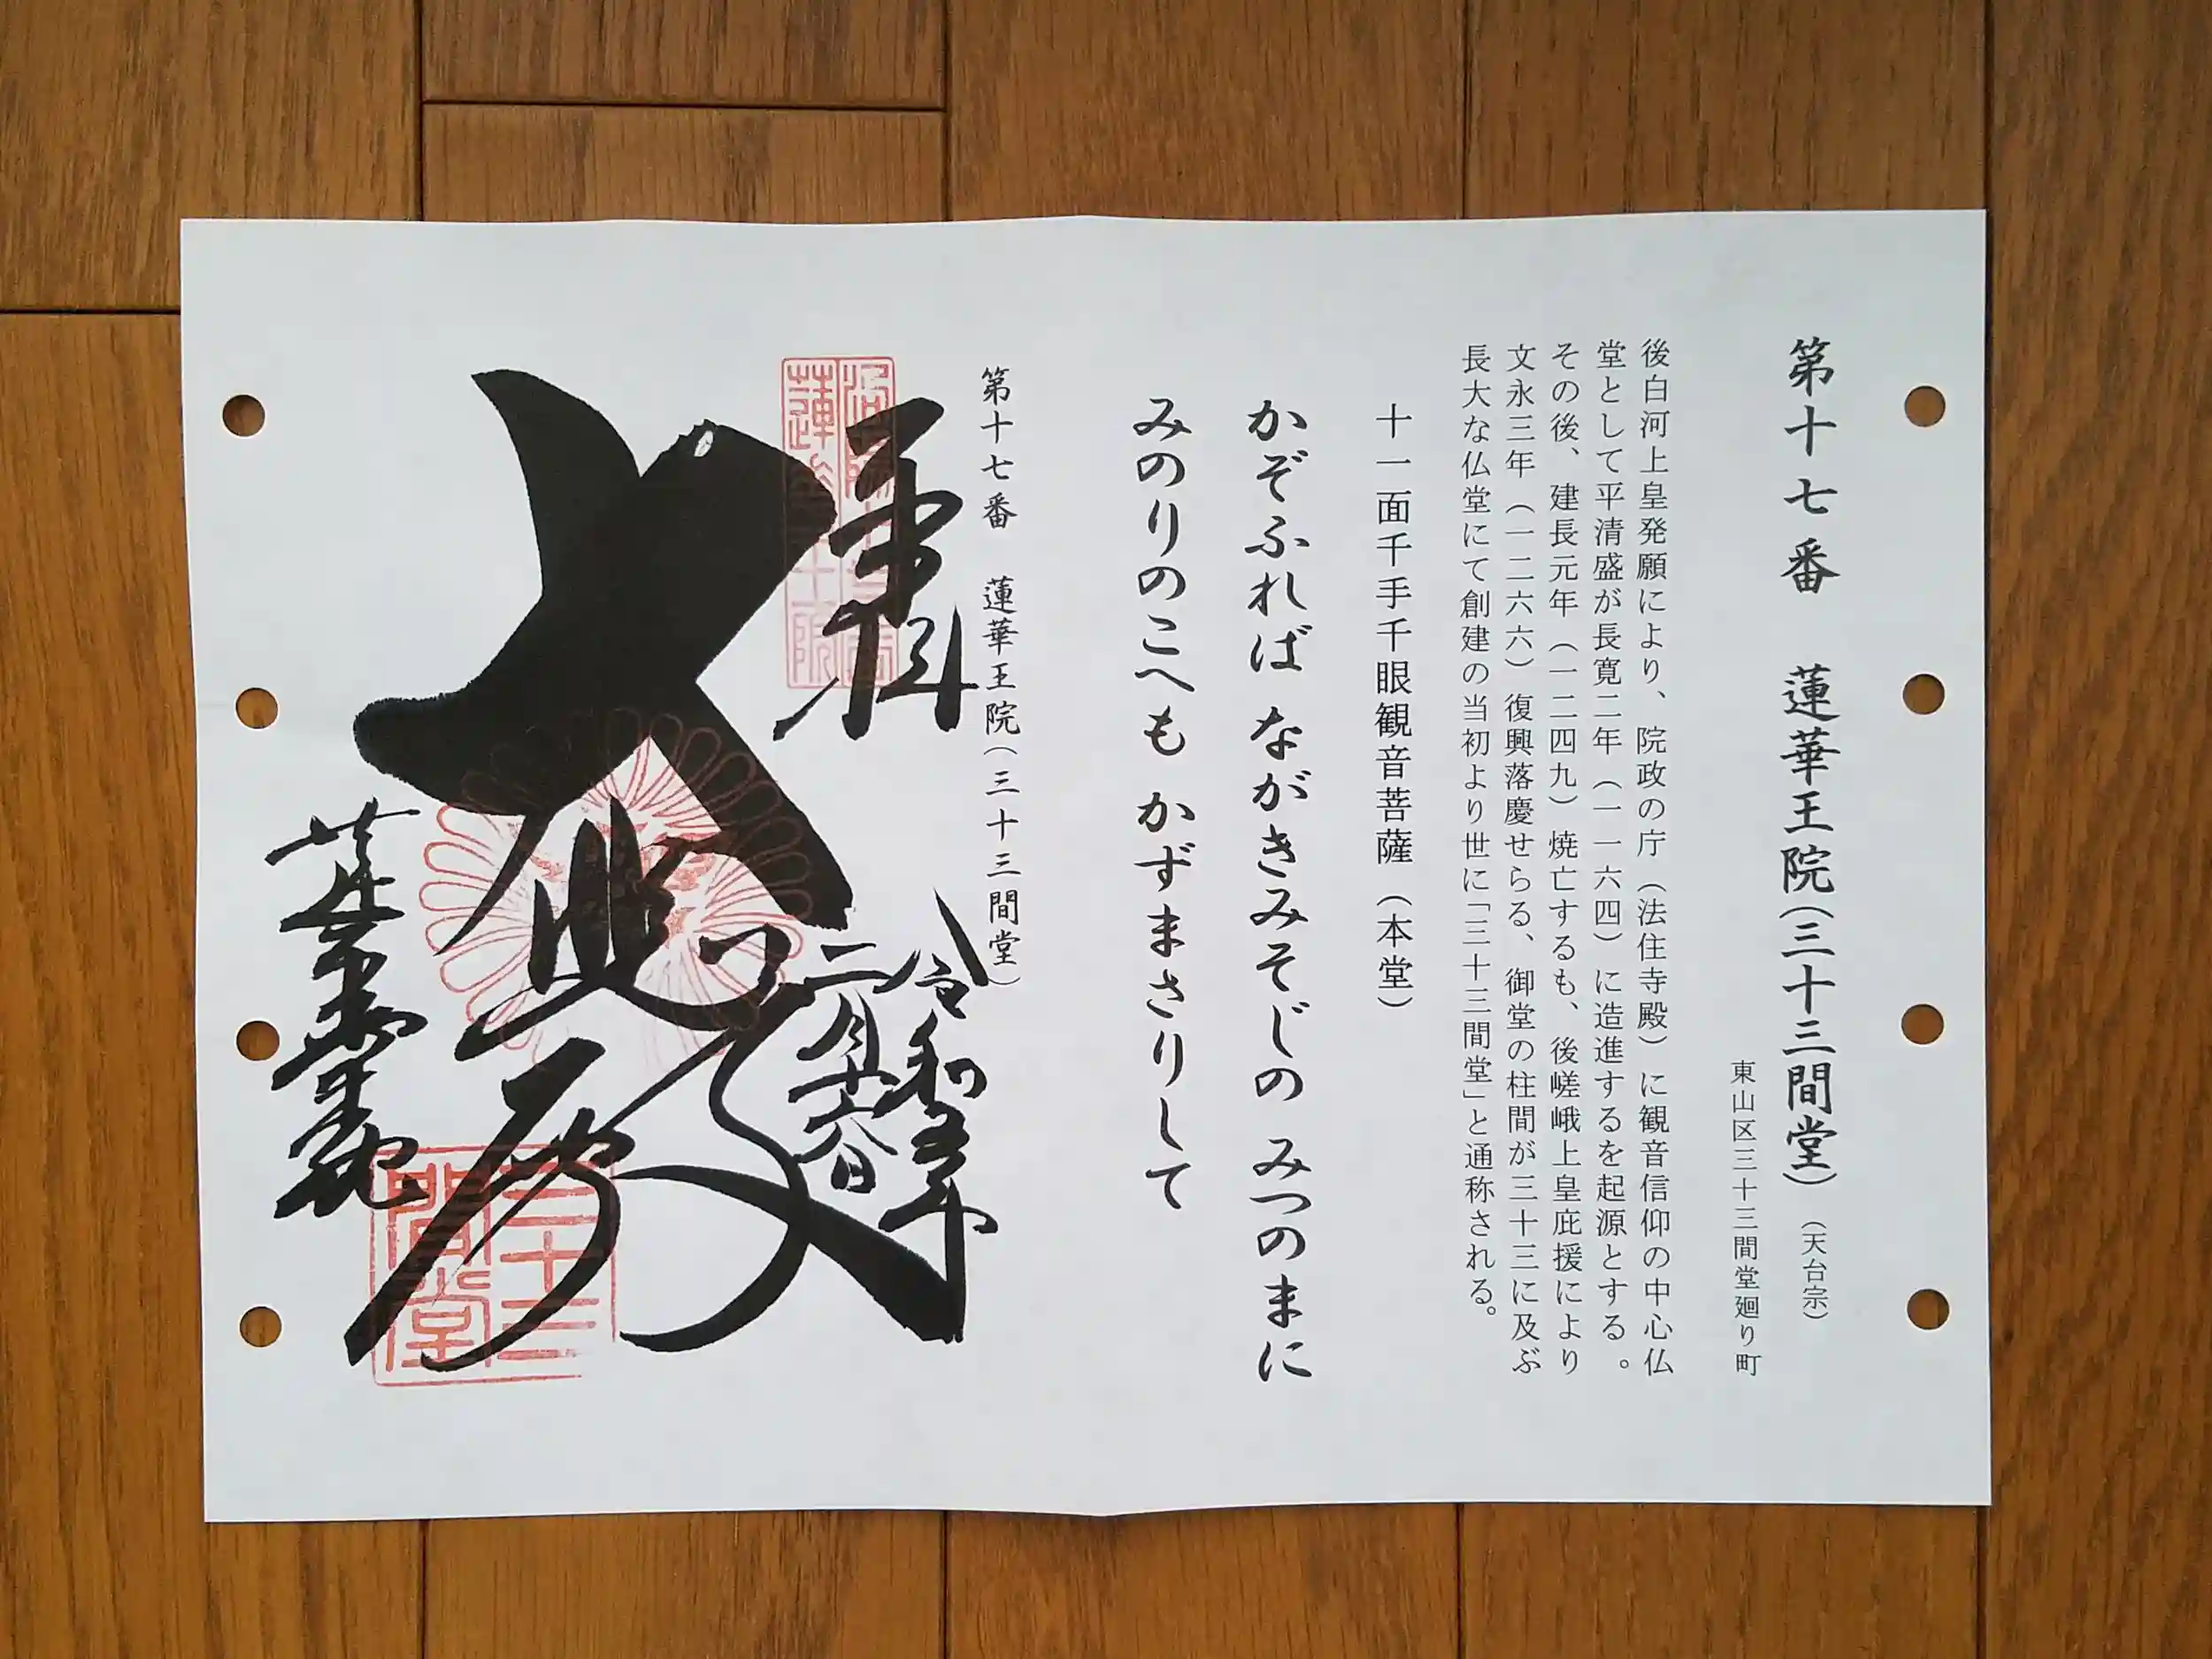 第十七番 蓮華王院(三十三間堂)(天台宗)
東山区三十三間堂廻り町
後白河上皇発願により、院政の庁(法住寺殿)に観音信仰の中心仏
堂として平清盛が長寛二年(一一六四)に造進するを起源とする。
その後、建長元年(一二四九)焼亡するも、後嵯峨上皇庇援により
文永三年(一二六六)復興落慶せらる、御堂の柱間が三十三に及ぶ
長大な仏堂にて創建の当初より世に「三十三間堂」と通称される。
十一面千手千眼観音菩薩(本堂)
かぞふれば ながきみそじの みつのまに
みのりのこへも かずまさりして
第十七番 蓮華王院(三十三間堂)
奉拝
令和五年
二月十六日
大悲殿
蓮華王院
三十三
間堂